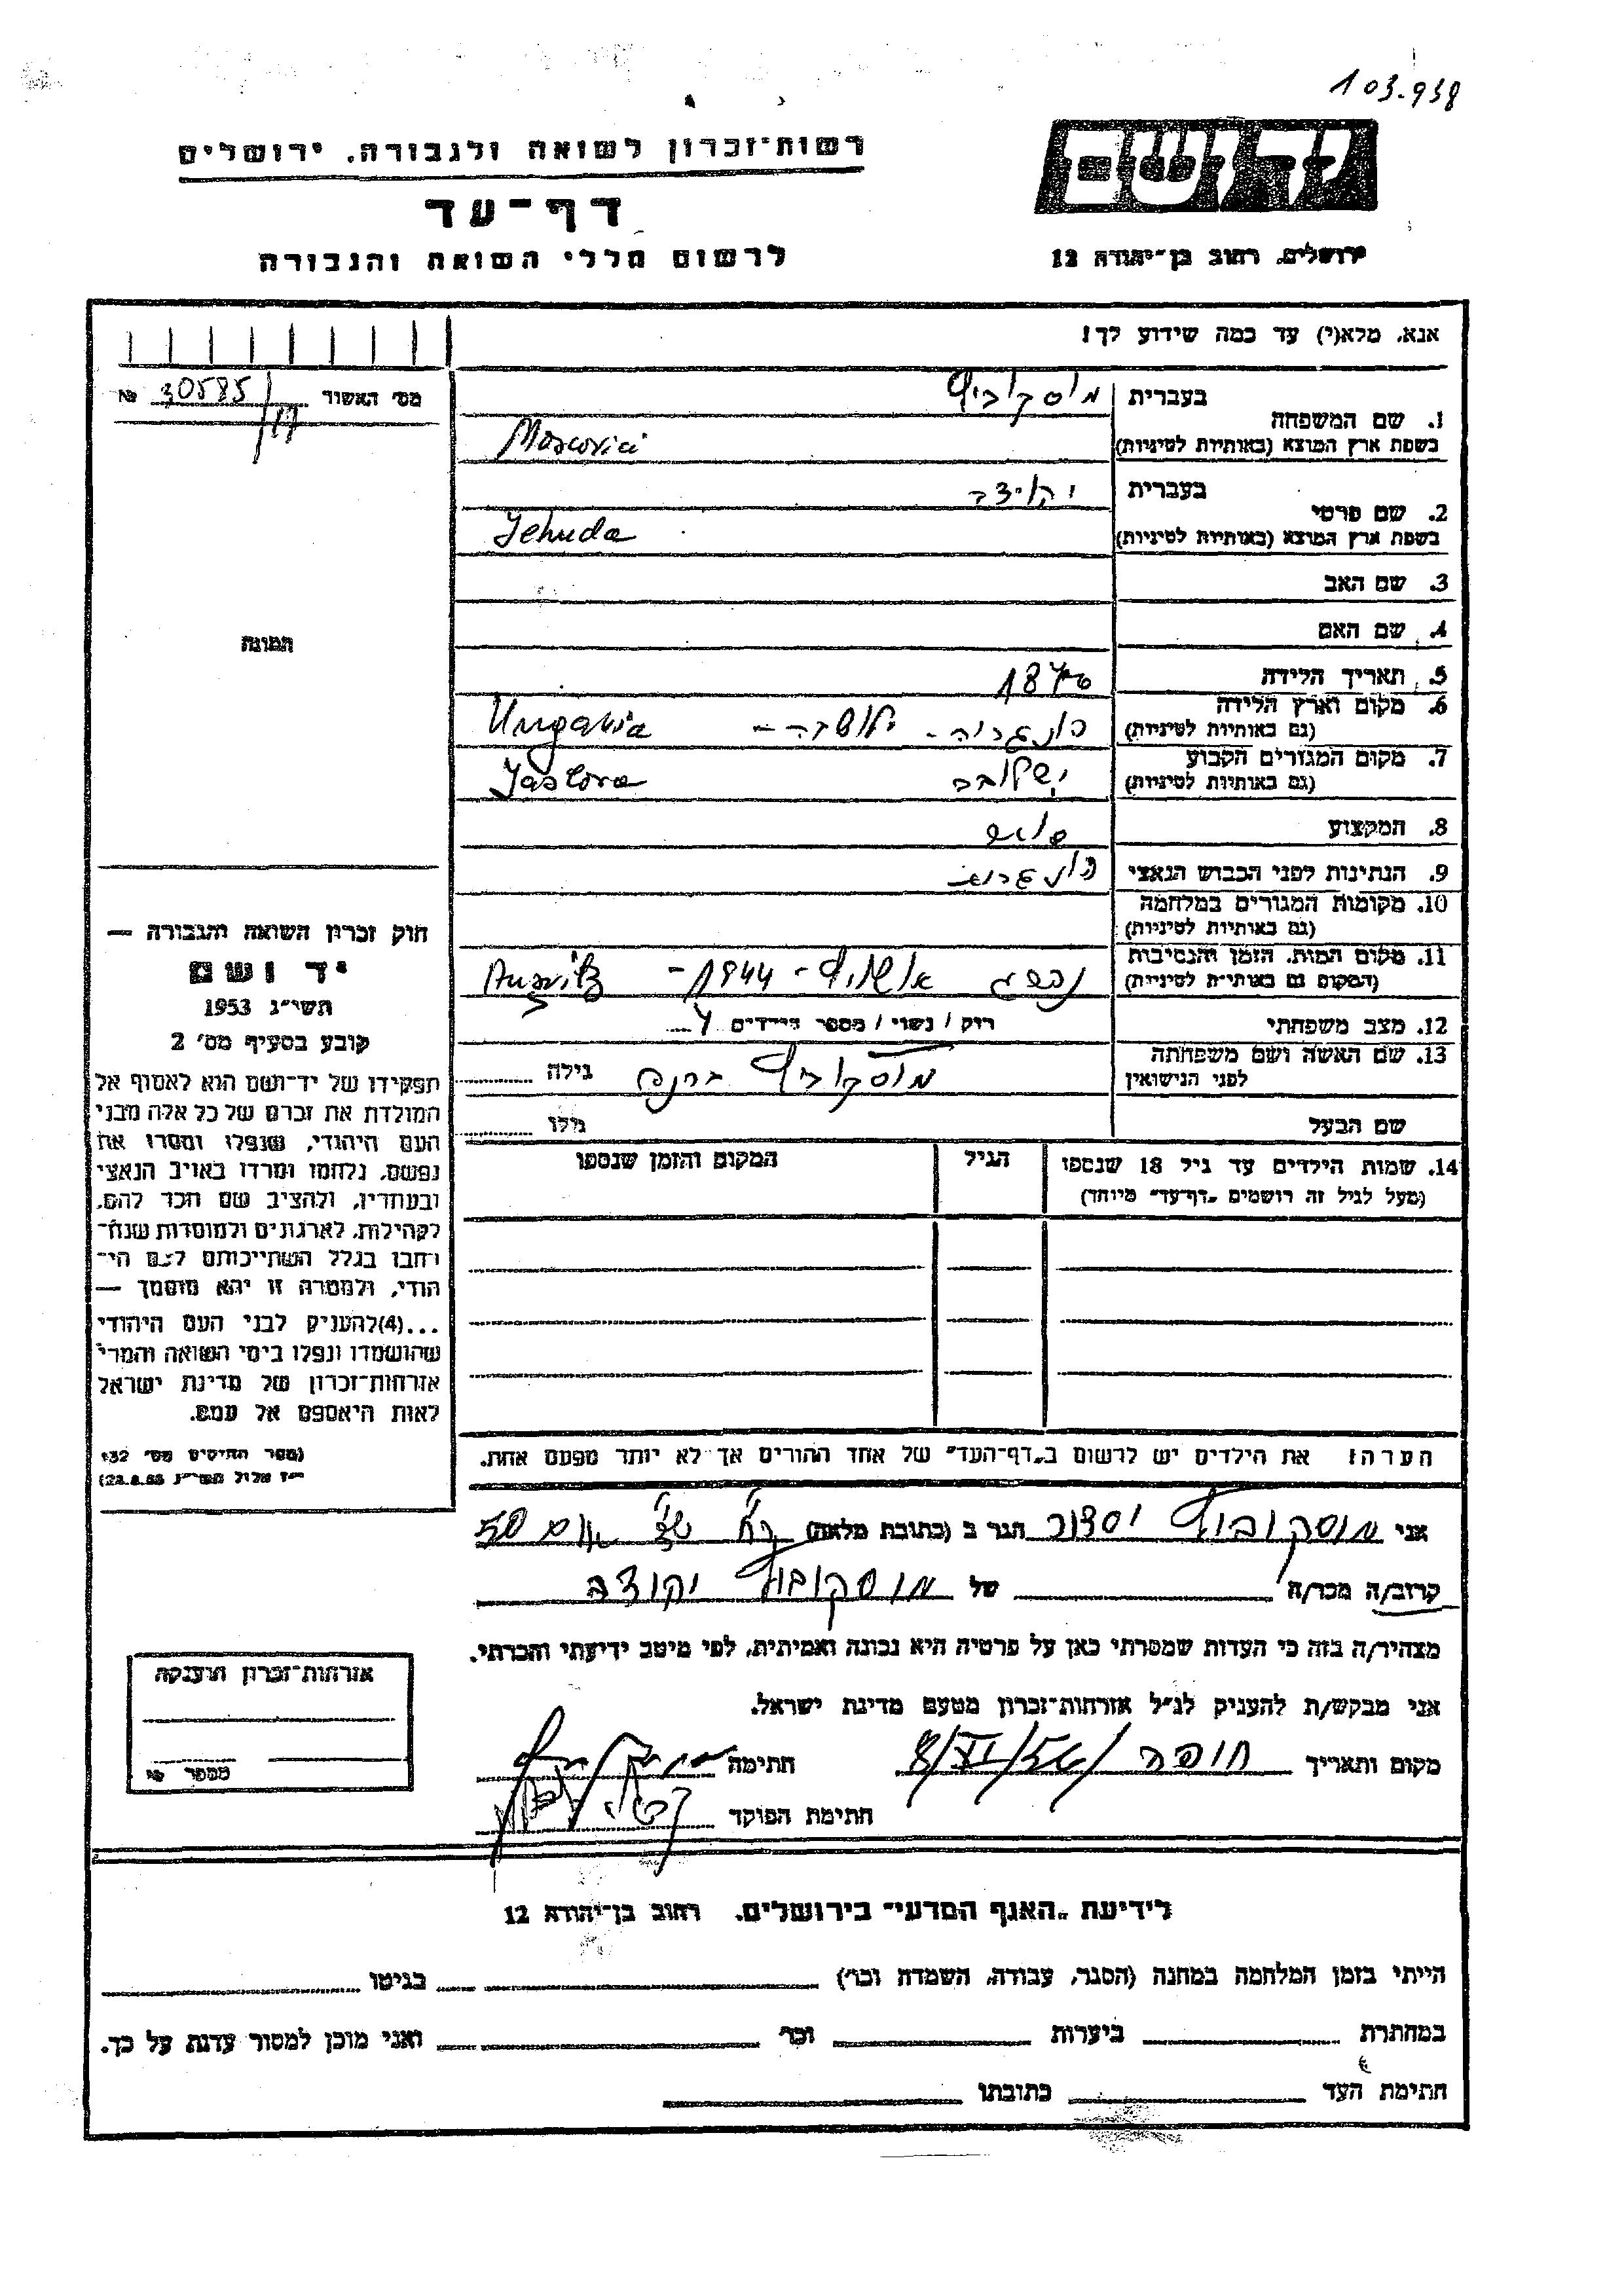 103.938
יד ושם
רשות־זכרון לשואה ולגבורה, ירושלים
דף־עד
לרשום חללי השואה והגבורה
ירושלים, רחוב בן־יהודה 12
אנא, מלא(י) עד כמה שידוע לך!
מס׳ האשור 30585 №
1. שם המשפחה
בעברית מוסקוביץ
בשפת ארץ המוצא (באותיות לטיניות) Moscovici
2. שם פרטי
בעברית
בשפת ארץ המוצא (באותיות לטיניות) Jehuda
3. שם האב
4. שם האם
5. תאריך הלידה
6. מקום וארץ הלידה
(גם באותיות לטיניות) Ungaria
7. מקום המגורים הקבוע
(גם באותיות לטיניות)
8. המקצוע
9. הנתינות לפני הכבוש הנאצי
10. מקומות המגורים במלחמה
(גם באותיות לטיניות)
11. מקום המות, הזמן והנסיבות
(המקום גם באותיות לטיניות) אושויץ - 1944 -
12. מצב משפחתי רווק / נשוי / מספר הילדים
13. שם האשה ושם משפחתה
לפני הנישואין מוסקוביץ גילה
שם הבעל גילו
14. שמות הילדים עד גיל 18 שנספו
(מעל לגיל זה רושמים „דף־עד״ מיוחד)
הגיל
המקום והזמן שנספו
הערה: את הילדים יש לרשום ב„דף־העד״ של אחד ההורים אך לא יותר מפעם אחת.
התמונה
חוק זכרון השואה והגבורה —
יד ושם
תשי״ג 1953
קובע בסעיף מס׳ 2
תפקידו של יד־ושם הוא לאסוף אל
המולדת את זכרם של כל אלה מבני
העם היהודי, שנפלו ומסרו את
נפשם, נלחמו ומרדו באויב הנאצי
ובעוזריו, ולהציב שם וזכר להם,
לקהילות, לארגונים ולמוסדות שנח־
רבו בגלל השתייכותם לעם הי־
הודי, ולמטרה זו יהא מוסמך —
...(4)להעניק לבני העם היהודי
שהושמדו ונפלו בימי השואה והמרי
אזרחות־זכרון של מדינת ישראל
לאות היאספם אל עמם.
(ספר החוקים מס׳ 132
י״ז אלול תשי״ג 28.8.53)
אני מוסקוביץ הגר ב (כתובת מלאה)
קרוב/ה מכר/ה של מוסקוביץ
מצהיר/ה בזה כי העדות שמסרתי כאן על פרטיה היא נכונה ואמיתית, לפי מיטב ידיעתי והכרתי.
אני מבקש/ת להעניק לנ״ל אזרחות־זכרון מטעם מדינת ישראל.
מקום ותאריך 8/XI/56 חתימה
חתימת הפוקד
אזרחות־זכרון הוענקה
מספר
לידיעת „האגף המדעי״ בירושלים, רחוב בן־יהודה 12
הייתי בזמן המלחמה במחנה (הסגר, עבודה, השמדה וכו׳) בגיטו
במחתרת ביערות וכו׳ ואני מוכן למסור עדות על כך.
חתימת העד כתובתו